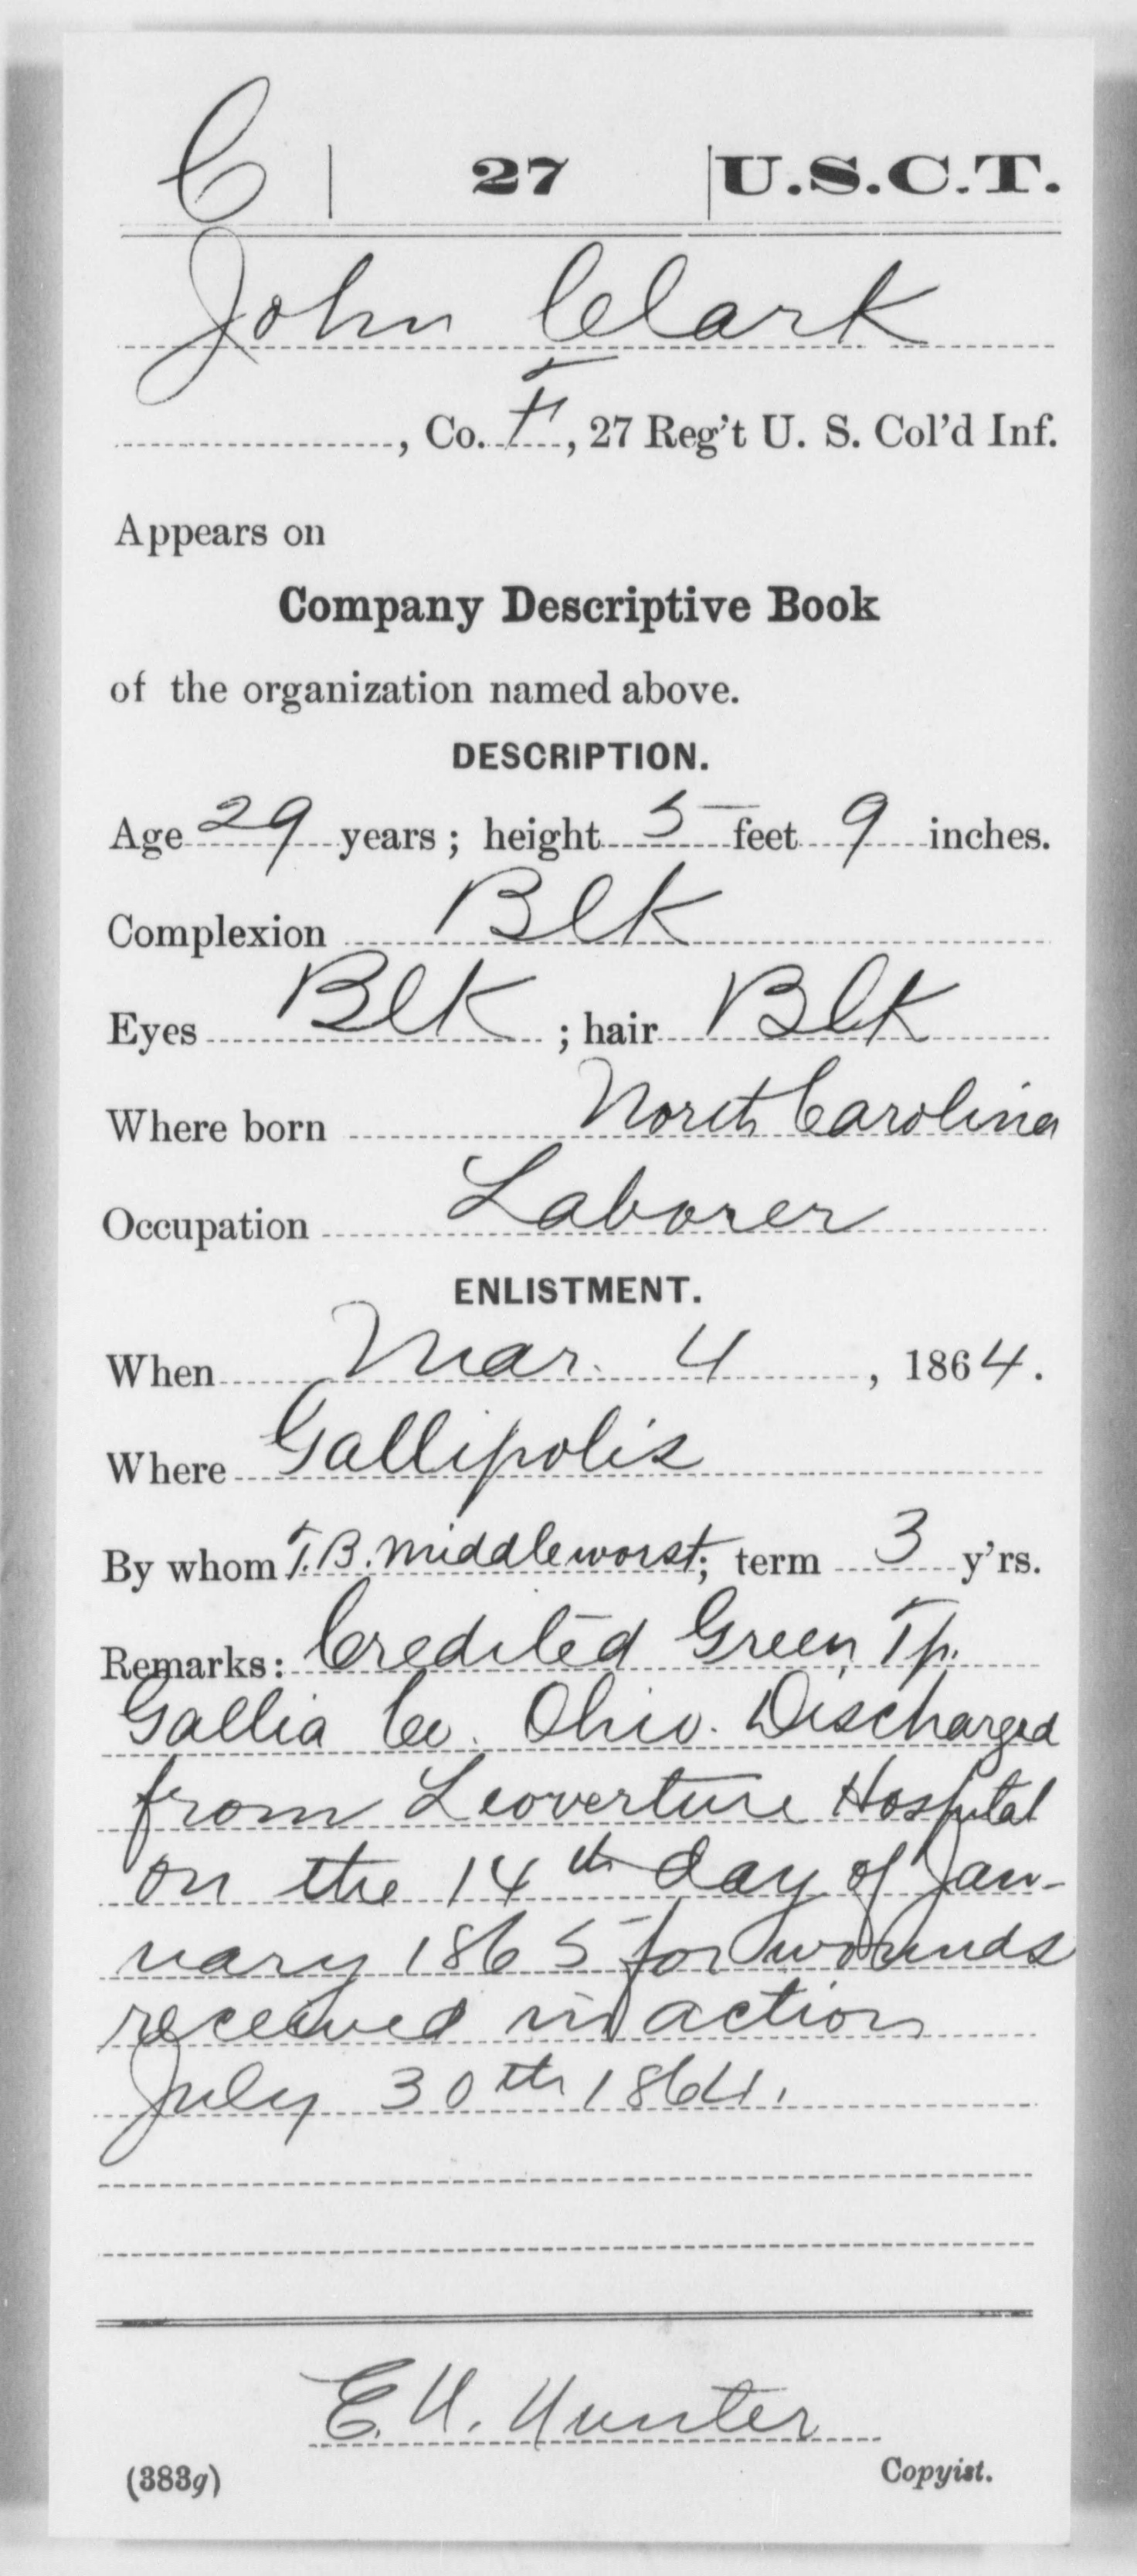 C | 27 | U.S.C.T.
John Clark
, Co. F, 27 Reg't U. S. Col'd Inf.
Appears on
Company Descriptive Book
of the organization named above.
DESCRIPTION.
Age 29 years; height 5 feet 9 inches.
Complexion Blk
Eyes Blk; hair Blk
Where born North Carolina
Occupation Laborer
ENLISTMENT.
When Mar. 4, 1864.
Where Gallipolis
By whom T.B. Middleworst; term 3 y'rs.
Remarks: Credited Green Tp.
Gallia Co. Ohio. Discharged
from Leoverture Hospital
on the 14th day of Jan-
uary 1865 for wounds
received in action
July 30th 1864.
E.H. Hunter
(383g) Copyist.